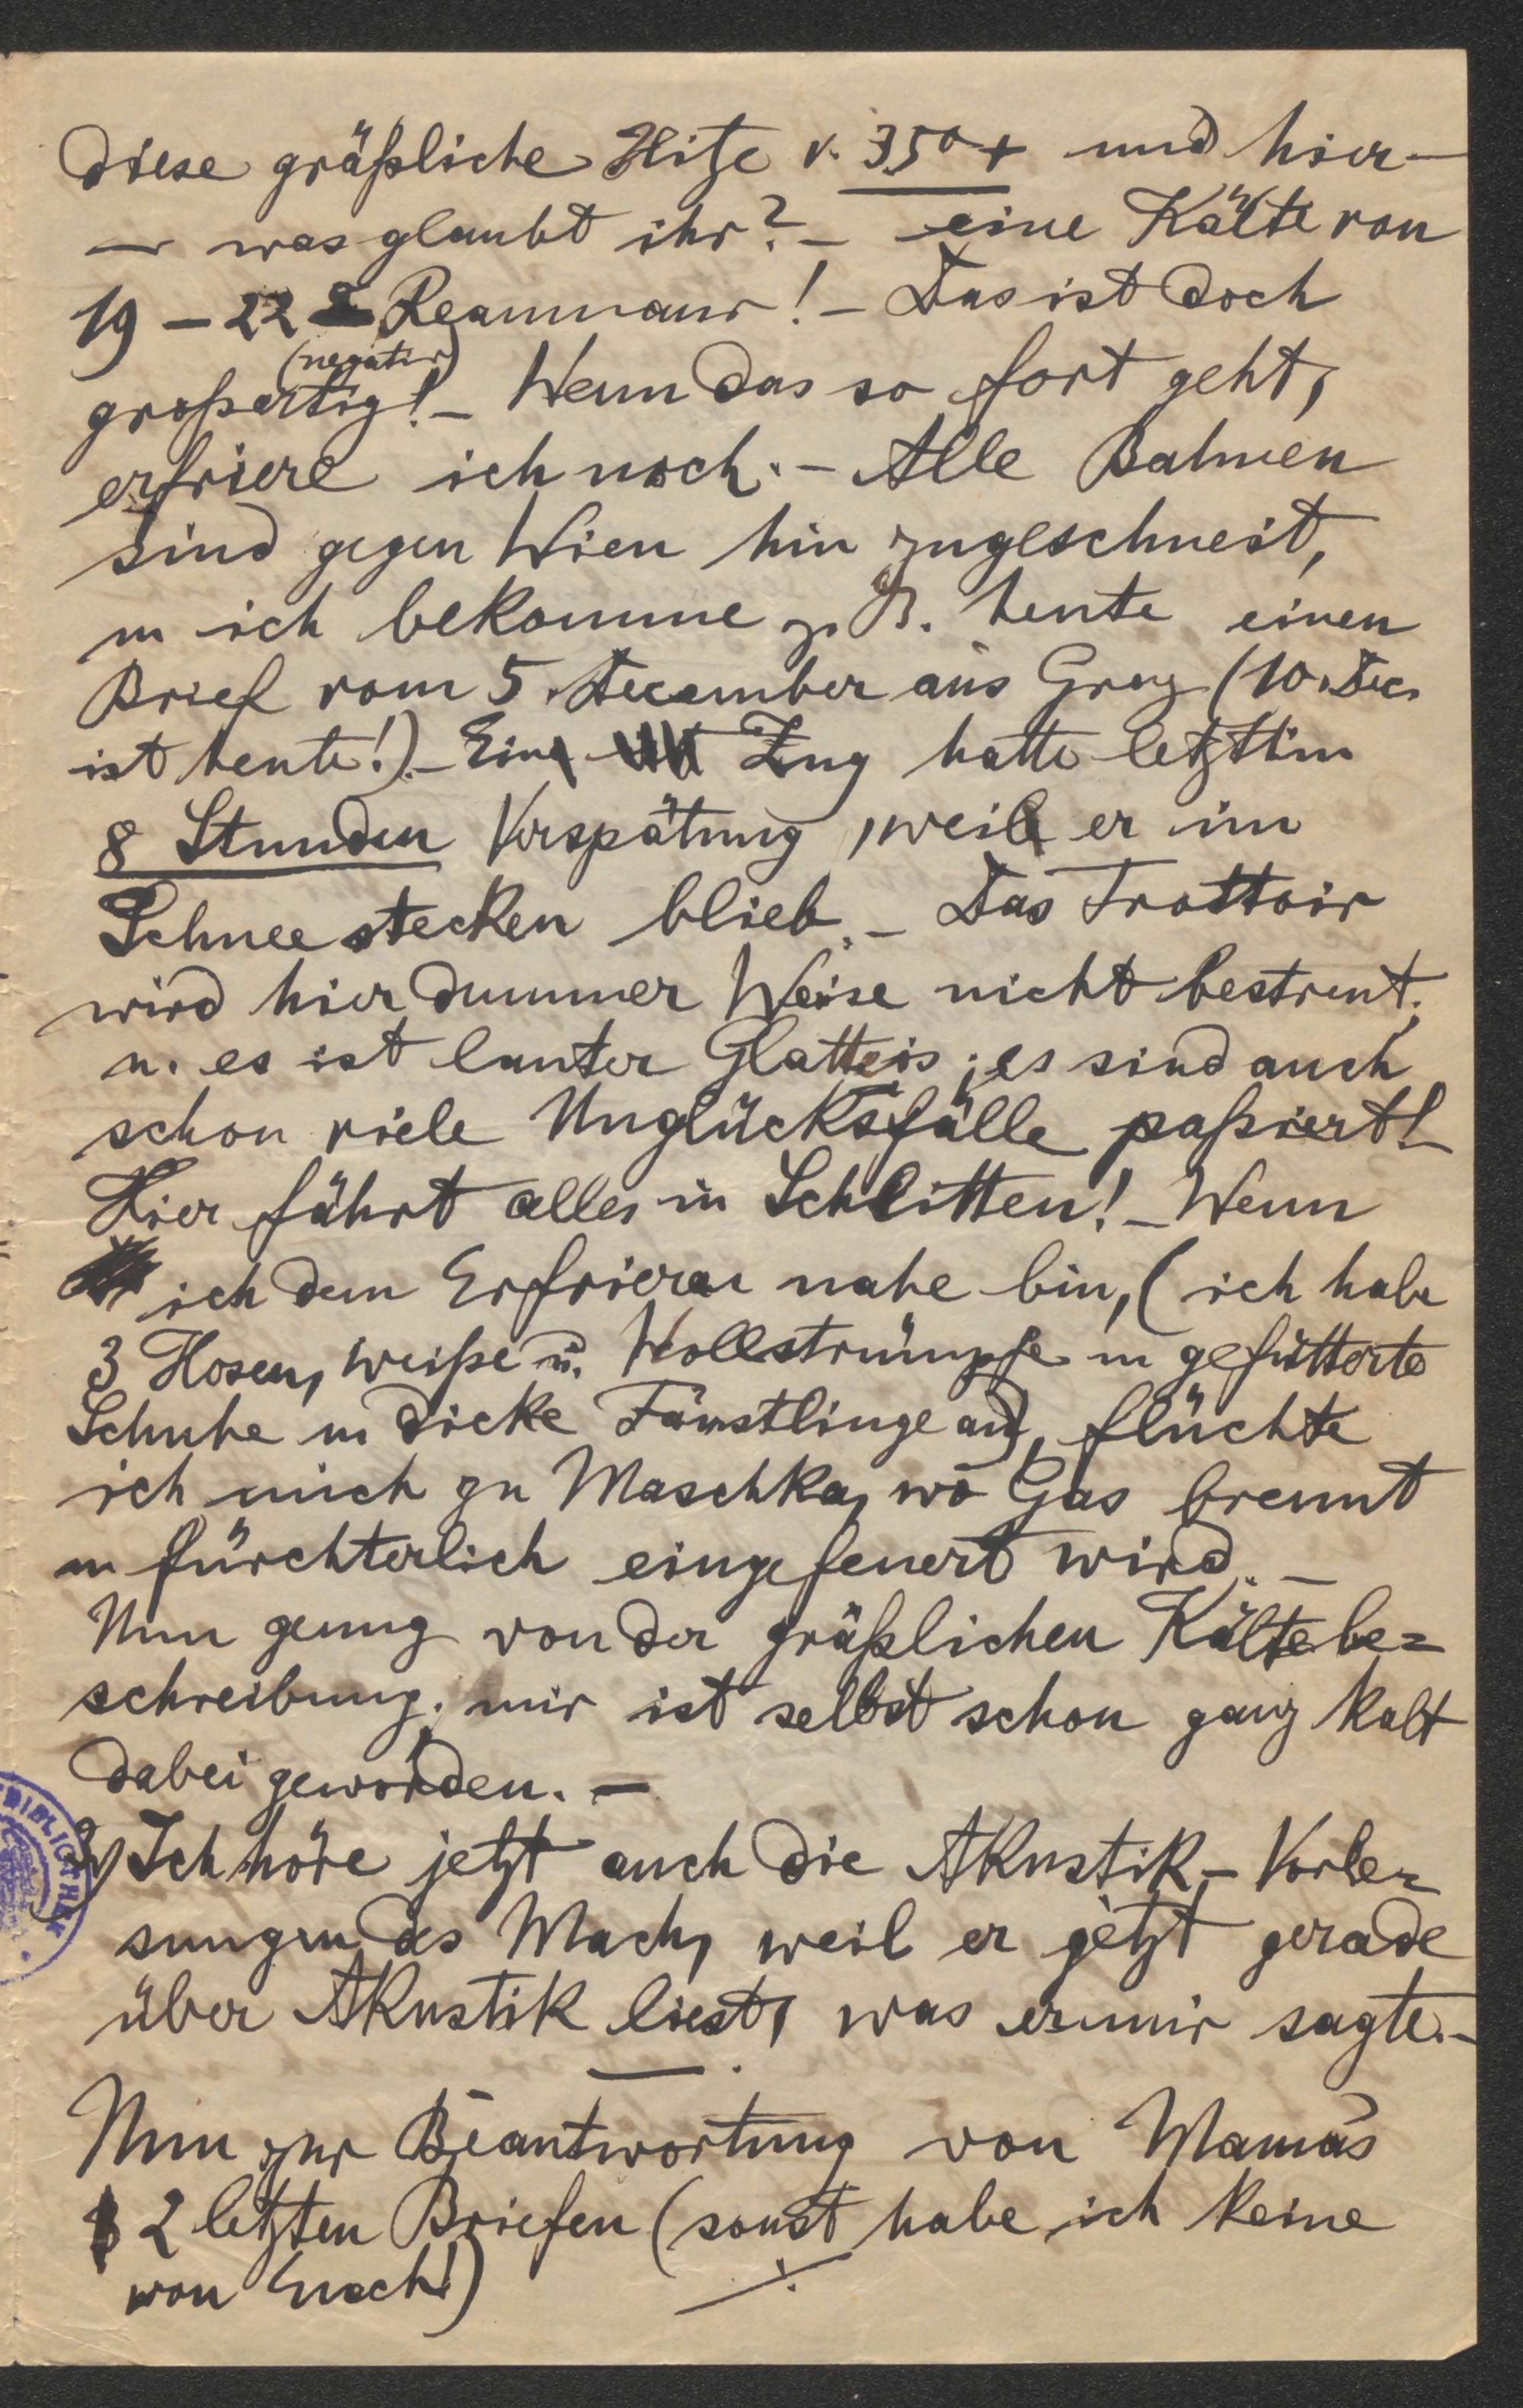 diese gräßliche Hitze v. 35°+ und hier –
– was glaubt ihr? – eine Kälte von
19 – 22 Reaumaur! – Das ist doch
(negativ)
großartig! – Wenn das so fort geht,
erfriere ich noch. – Alle Bahnen
sind gegen Wien hin zugeschneit,
u ich bekomme z. B. heute einen
Brief vom 5. December aus Graz (10. Dec.
ist heute!). – Ein Zug hatte letzthin
8 Stunden Verspätung, weil er im
Schnee stecken blieb. – Das Trottoir
wird hier dummer Weise nicht bestreut,
u. es ist lauter Glatteis; es sind auch
schon viele Unglücksfälle paßiert! –
Hier fährt alles in Schlitten! – Wenn
ich dem Erfrieren nahe bin, (ich habe
3 Hosen, weiße u. Wollstrümpfe u gefütterte
Schuhe u dicke Fäustlinge an), flüchte
ich mich zu Maschka, wo Gas brennt
u fürchterlich eingefeuert wird. –
Nun genug von der gräßlichen Kältebe=
schreibung; mir ist selbst schon ganz kalt
dabei geworden. –
Ich höre jetzt auch die Akustik – Vorle=
sungen des Mach, weil er jetzt gerade
über Akustik liest, was er mir sagte. –
Nun zur Beantwortung von Mamas
2 letzten Briefen (sonst habe ich keine
von Euch!)